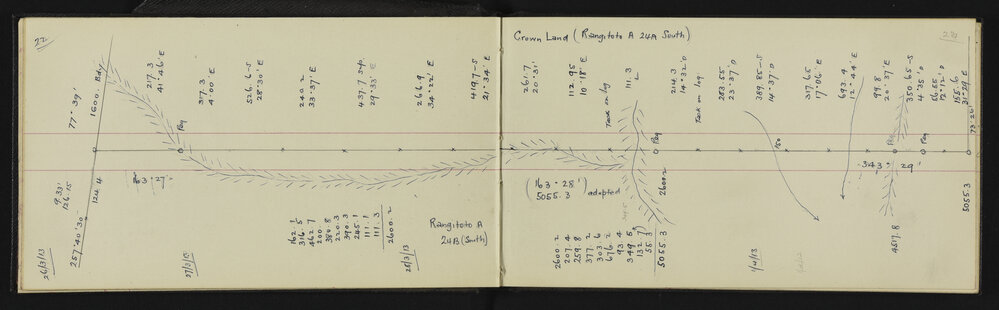 22
26/3/13
257° 40' 30"
77° 39'
1600. Bdy
124.4
9.33'
126.15
217. 3
41° 46' E
Peg
163° 27'
27/3/13
377. 3
4.00' E
526. 6-5
28° 30' E
240. 2
33° 37' E
437. 7
29° 33' E
266. 9
34° 22' E
419. 7-5
21° 34' E
162. 1
316. 5
462. 7
200
380. 8
220. 3
390. 3
245. 1
111. 1
111. 3
2600. 2
28/3/13
Rangitoto A
24B (South)
Crown Land (Rangitoto A 24A South)
261. 7
20° 31'
112. 95
10° 18' E
Tack on log
111. 3
L
214. 3
14° 32' 0
Tack on log
283. 55
23° 37' 0
389. 85-5
14° 37' 0
317. 65
17° 06' E
693. 9
12° 44' E
99. 8
20° 37' E
350. 65-5
4° 35' 0
56. 85
12° 12' 0
155. 6
31° 29' E
73° 26'
(163° 28')
5055. 3 adopted
Peg
2600. 2
2600. 2
207. 4
259. 8
377. 2
303. 6
676. 2
93. 4
349. 5
132. 7
55. 3
5055. 3
150
1/4/13
Peg
343° 29'
Peg
4517. 8
5055. 3